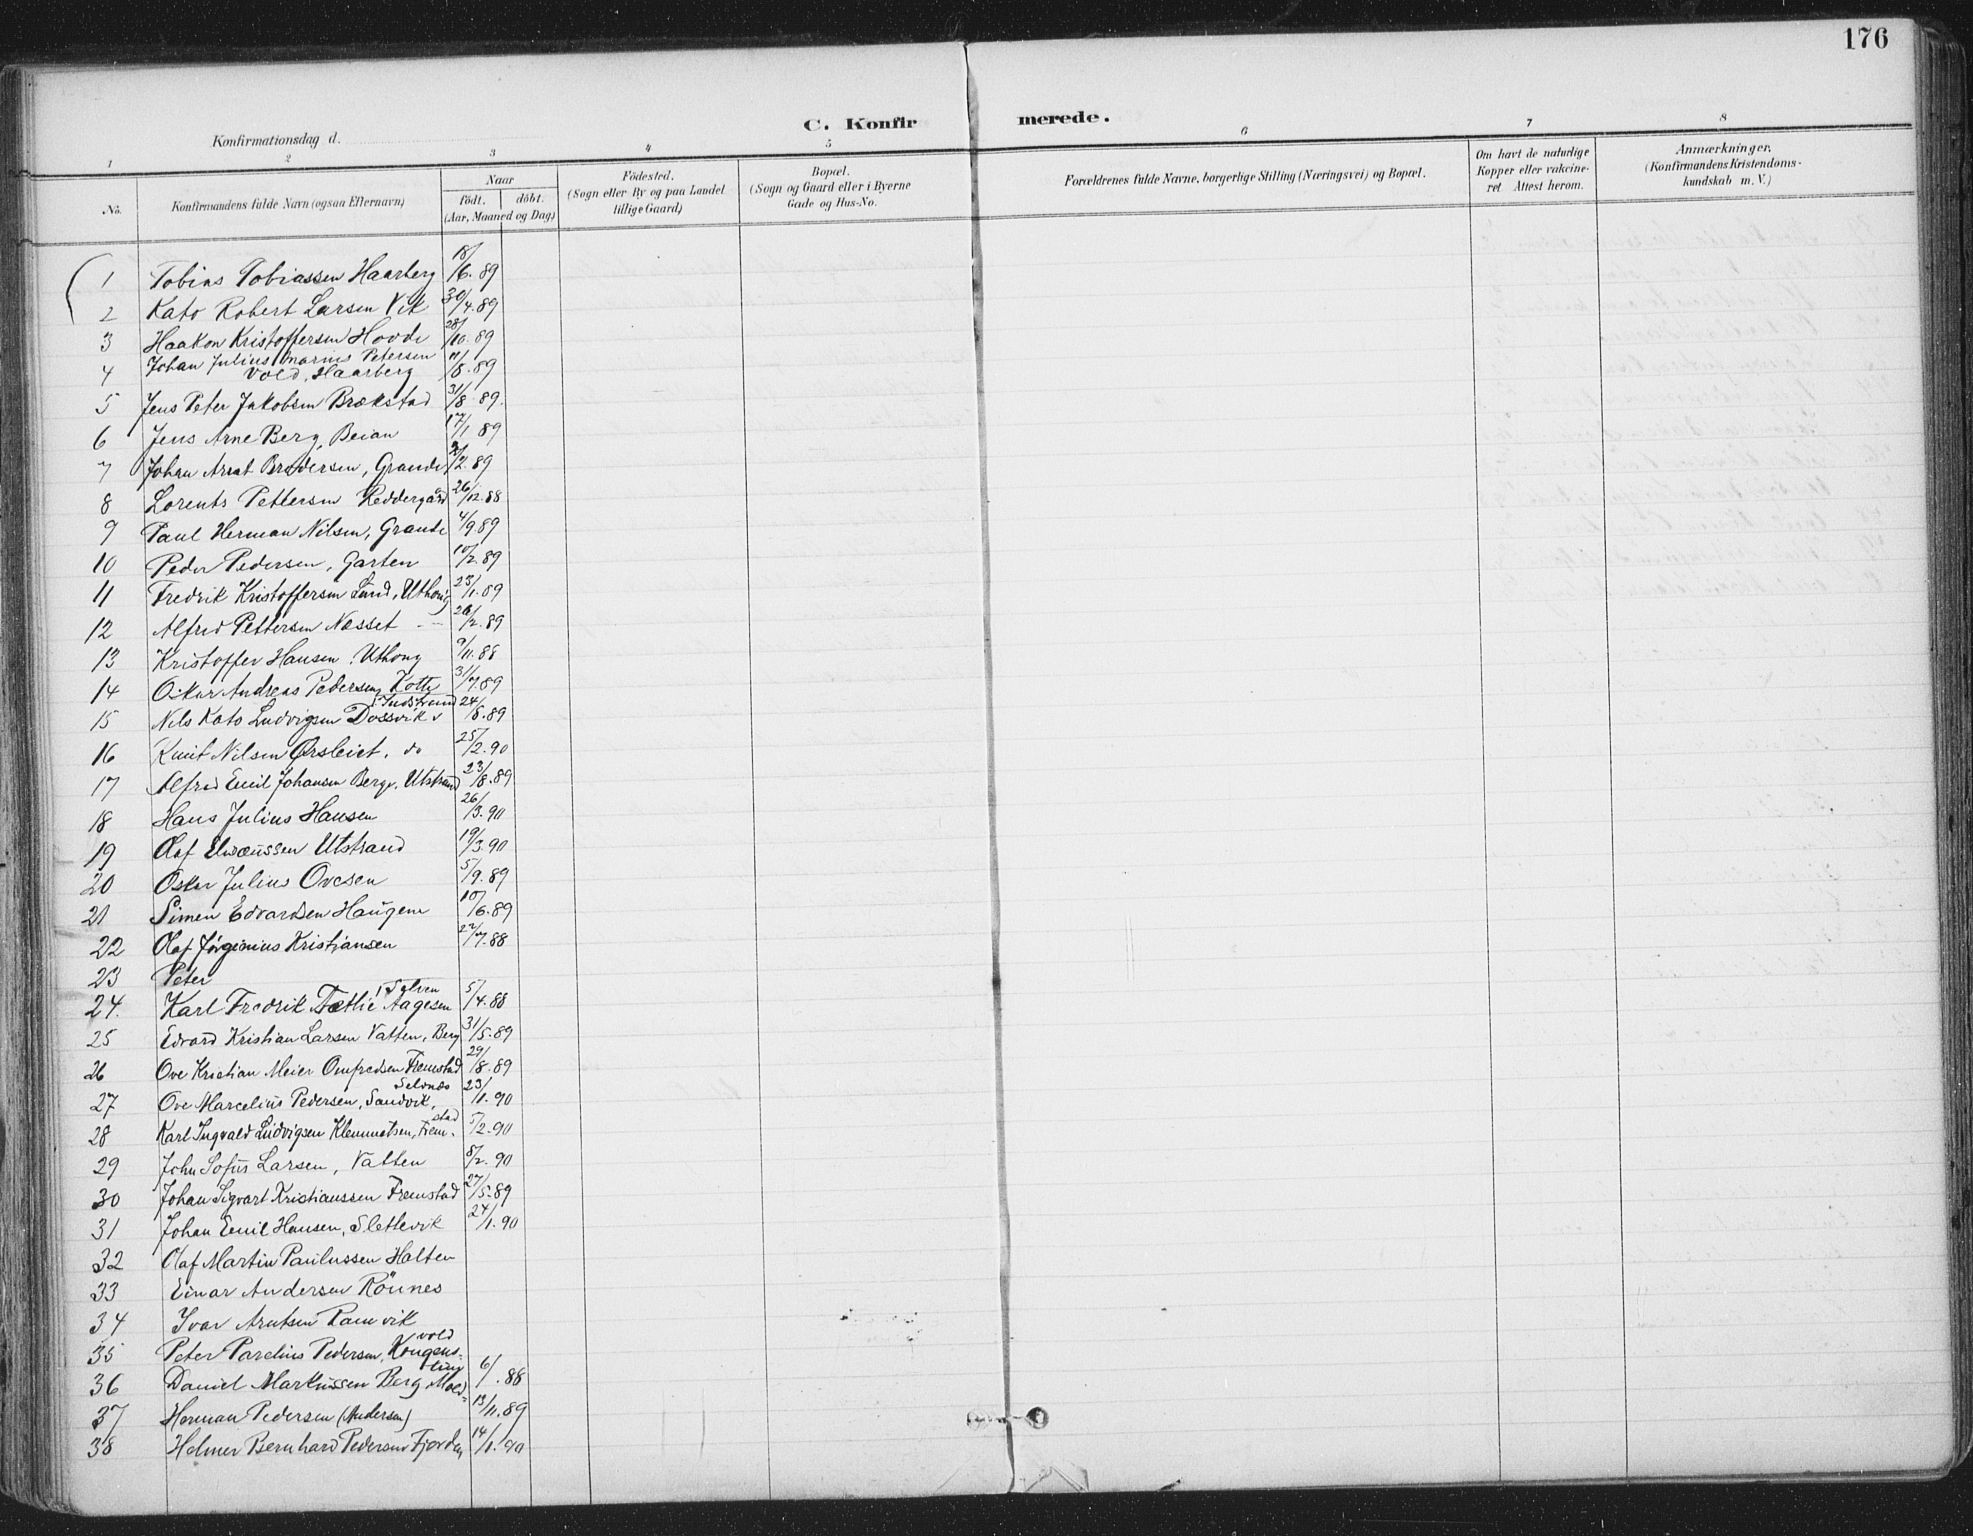 176
C. Konfirmerede.
Konfirmationsdag d.
1 2 3 4 5 6 7 8
No.
Konfirmandens fulde Navn (ogsaa Efternavn)
Naar
födt. döbt.
(Aar, Maaned og Dag)
Födested.
(Sogn eller By og paa Landet
tillige Gaard)
Bopæl.
(Sogn og Gaard eller i Byerne
Gade og Hus-No.
Forældrenes fulde Navne, borgerlige Stilling (Næringsvei) og Bopæl.
Om havt de naturlige
Kopper eller vakcine-
ret Attest herom.
Anmærkninger.
(Konfirmandens Kristendoms-
kundskab m. V.)
1 Tobias Tobiassen Haarberg 18/6. 89
2 Kato Robert Larsen Vik 30/4. 89
3 Haakon Kristoffersen Hovde 28/10. 89
4 Johan Julius Marius Petersen
Vold, Haarberg 11/8. 89
5 Jens Peter Jakobsen Brækstad 31/8 89.
6 Jens Arne Berg, Beian 17/1 89
7 Johan Arnt Brodersen, Grande 2/2. 89
8 Lorents Pettersen Reddergård 26/12. 88
9 Paul Herman Nilsen, Grande 4/9 89
10 Peder Pedersen, Garten 10/2. 89
11 Fredrik Kristoffersen Lund, Uthaug 23/1. 89
12 Alfred Pettersen Næsset - 26/2. 89
13 Kristoffer Hansen, Uthaug 9/11. 88
14 Oskar Andreas Pedersen Kotte 31/7 89
15 Nils Kato Ludvigsen Dossvik, Indstrand 24/8. 89
16 Knut Nilsen Ørsleiet, do 25/2. 90
17 Alfred Emil Johansen Berge, Utstrand 23/8. 89
18 Hans Julius Hansen 26/3. 90
19 Olaf Elwæussen Utstrand 19/3. 90
20 Oskar Julius Ovesen 5/9. 89
21 Simen Edvardsen Haugen 10/6. 89
22 Olaf Jörginius Kristiansen 27/7. 88
23 Peter
24. Karl Fredrik Tætlie Aagesen 5/4. 88
25 Edvard Kristian Larsen Vatten, Berg 31/5. 89
26 Ove Kristian Meier Omfredsen Fremstad 29/8. 89
27 Ove Marcelius Pedersen, Sandvik, Selvnæs 23/1. 90
28 Karl Ingvald Ludvigsen Klemmetsen, Fremstad 5/2. 90
29 John Sofus Larsen, Vatten 8/2. 90
30 Johan Sigvart Kristianssen Fremstad 27/5. 89
31 Johan Emil Hansen, Slettevik 24/1. 90
32 Olaf Martin Paulussen Halten
33 Einar Andersen Rönnes
34 Ivar Arntsen Ramvik
35 Peter Parelius Pedersen, Kongensvold
36 Daniel Markussen Berg 6/ . 88
37 Herman Pedersen (Andersen) 13/11. 89
38 Helmer Bernhard Pedersen Fjorden 14/1. 90